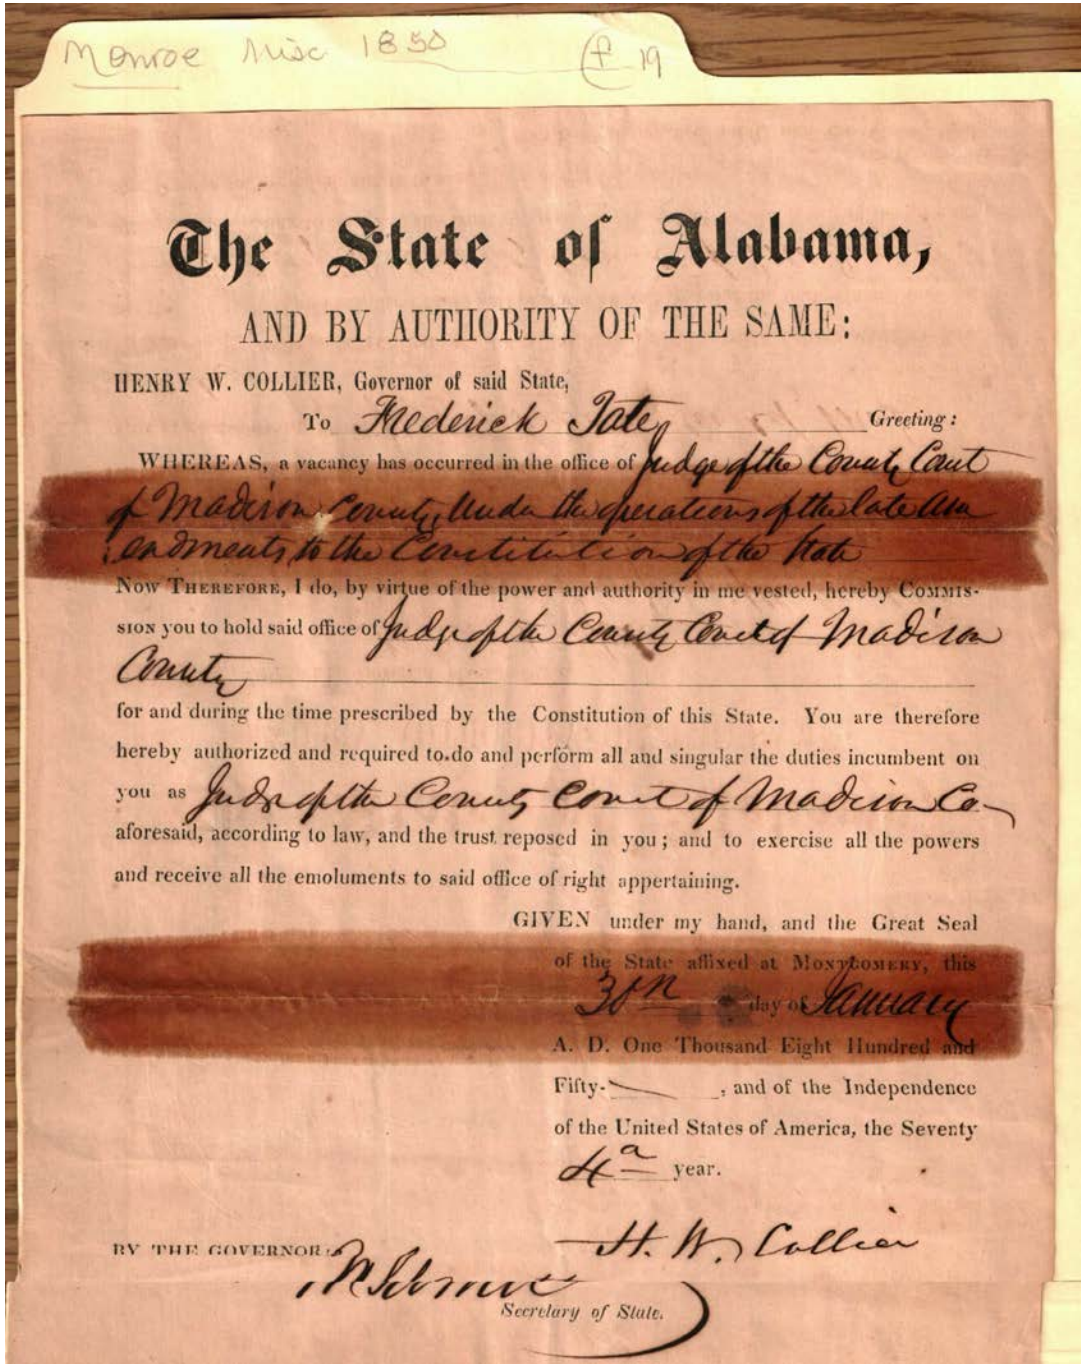 Monroe Misc 1850 f 19
The State of Alabama,
AND BY AUTHORITY OF THE SAME:
HENRY W. COLLIER, Governor of said State,
To Frederick Tate, Greeting:
WHEREAS, a vacancy has occurred in the office of Judge of the County Court
of Madison County, Under the operations of the late Am
endments to the Constitution of the State
NOW THEREFORE, I do, by virtue of the power and authority in me vested, hereby COMMIS-
SION you to hold said office of Judge of the County Court of Madison
County
for and during the time prescribed by the Constitution of this State. You are therefore
hereby authorized and required to do and perform all and singular the duties incumbent on
you as Judge of the County Court of Madison Co
aforesaid, according to law, and the trust reposed in you; and to exercise all the powers
and receive all the emoluments to said office of right appertaining.
GIVEN under my hand, and the Great Seal
of the State affixed at MONTGOMERY, this
30th day of January
A. D. One Thousand Eight Hundred and
Fifty- , and of the Independence
of the United States of America, the Seventy
4th year.
H. W. Collier
BY THE GOVERNOR:
Secretary of State.